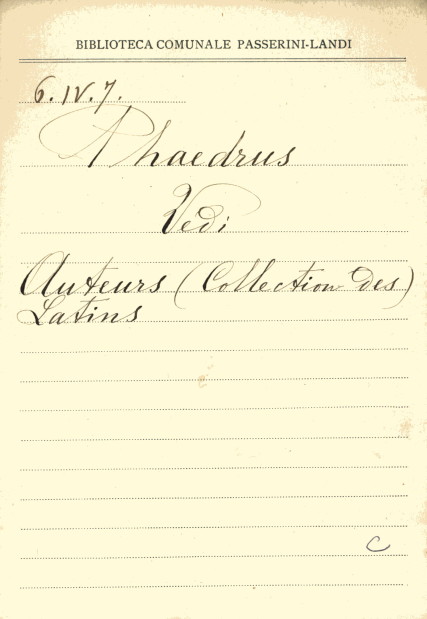 BIBLIOTECA COMUNALE PASSERINI-LANDI
6.IV.7.
Phaedrus
Vedi
Auteurs (Collection des)
Latins
C